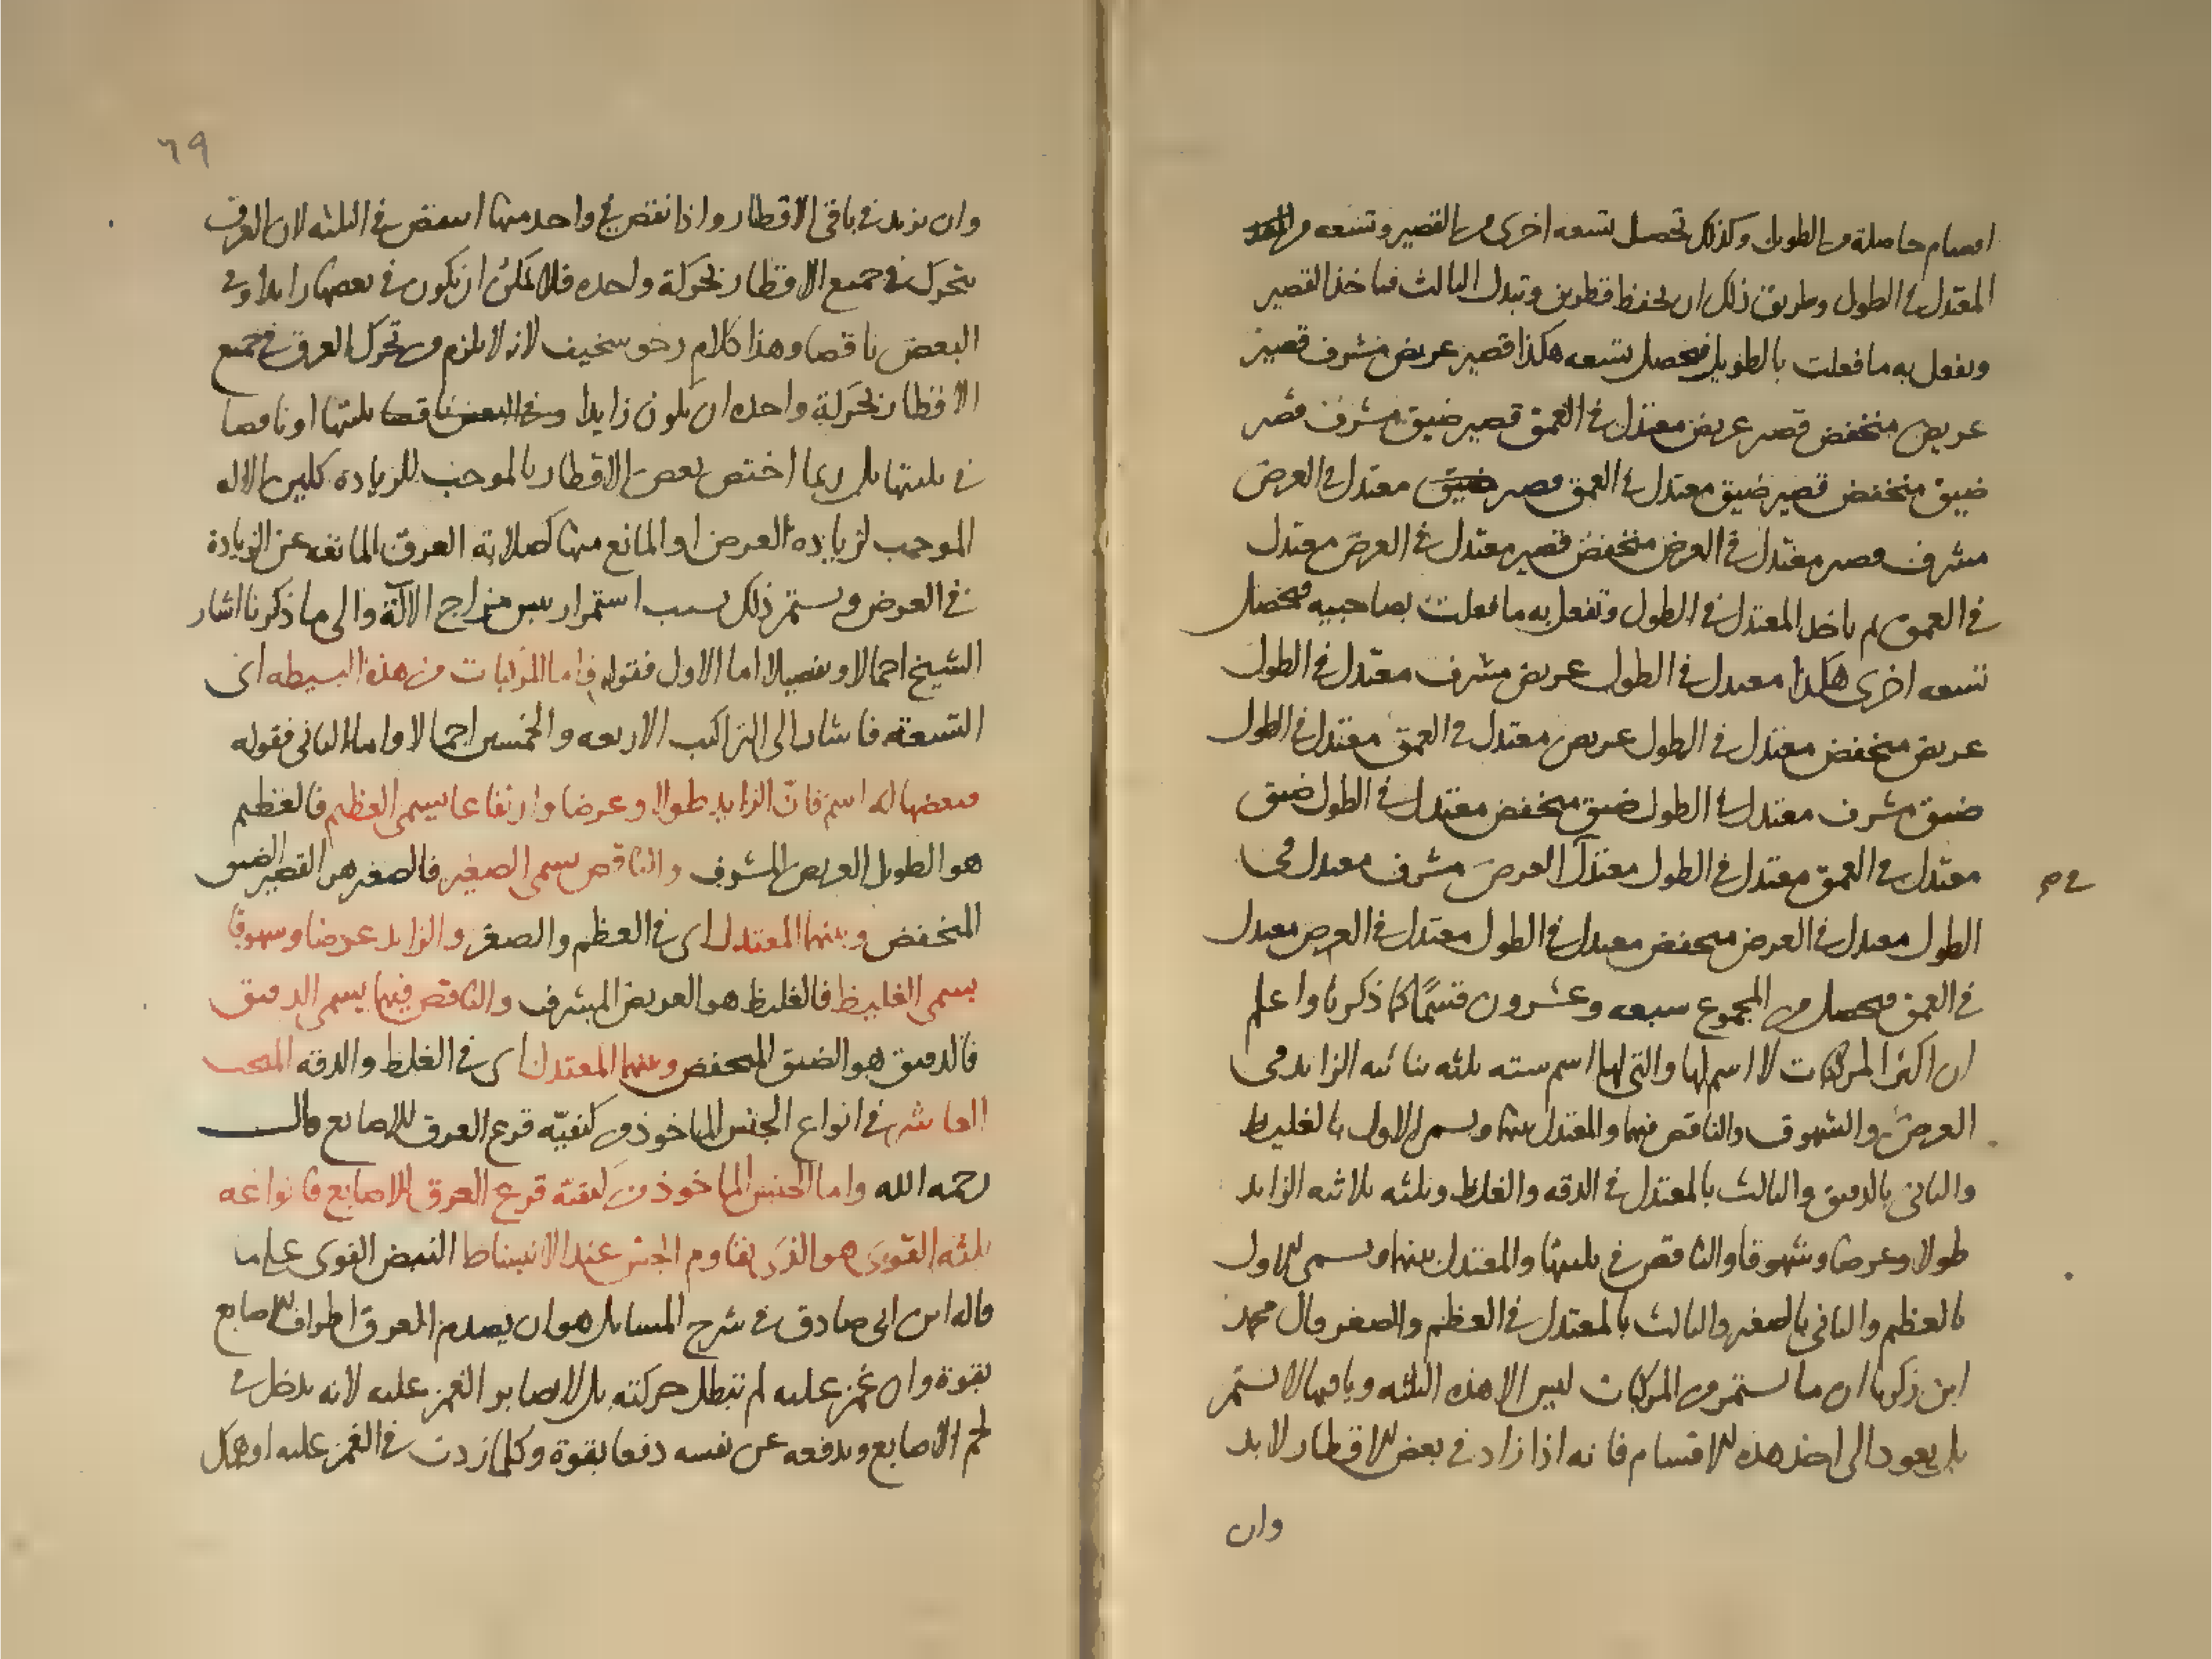 اقسام حاصلة من الطويل وكذلك تحصل تسعه اخرى من القصير وتسعه من
المعتدل في الطول وطريق ذلك ان تحفظ قطرين وتبدل الثالث فتاخذ القصير
وتفعل به ما فعلت بالطويل فيحصل تسعه هكذا قصير عريض مشرف قصير
عريض منخفض قصير عريض معتدل في العمق قصير ضيق مشرف قصير
ضيق منخفض قصير ضيق معتدل في العمق قصير ضيق معتدل في العرض
مشرف قصير معتدل في العرض منخفض قصير معتدل في العرض معتدل
في العمق ثم ياخذ المعتدل في الطول وتفعل به ما فعلت بصاحبيه فيحصل
تسعه اخرى هكذا معتدل في الطول عريض مشرف معتدل في الطول
عريض منخفض معتدل في الطول عريض معتدل في العمق معتدل في الطول
ضيق مشرف معتدل في الطول ضيق منخفض معتدل في الطول ضيق
معتدل في العمق معتدل في الطول معتدل العرض مشرف معتدل في
الطول معتدل في العرض منخفض معتدل في الطول معتدل في العرض معتدل
في العمق فيحصل من المجموع سبعه وعشرون قسمًا كما ذكرنا واعلم
ان اكثر المركبات لا اسم لها والتي لها اسم سته ثلثه ثنائيه الزايد في
العرض والشهوق والناقص فيهما والمعتدل بينهما ويسمى الاول بالغليظ
والثاني بالدقيق والثالث بالمعتدل في الدقه والغلظ وثلثه ثلاثيه الزايد
طولا وعرضا وشهوقا والناقص في ثلثتها والمعتدل بينهما ويسمى الاول
بالعظيم والثاني بالصغير والثالث بالمعتدل في العظم والصغر وقال محمد
ابن زكريا ان ما يستمر من المركبات ليس الا هذه الثلثه وباقيها لا يستمر
بل يعود الى احد هذه الاقسام فانه اذا زاد في بعض الاقطار لا بد
وان
٦٩
وان يزيد في باقي الاقطار واذا نقص في واحد منها انتقص في الثلثه لان العرق
يتحرك في جميع الاقطار بحركة واحده فلا يمكن ان يكون في بعضها زايدا وفي
البعض ناقصا وهذا كلام رخو سخيف لانه لا يلزم من تحرك العرق في جميع
الاقطار بحركة واحده ان يكون زايدا وفي البعض ناقصا ثلثتها او ناقصا
في ثلثتها بل ربما اختص بعض الاقطار بالموجب للزياده كلين الاله
الموجب لزيادة العرض او المانع منها كصلابة العرق المانعه عن الزيادة
في العرض ويستمر ذلك بسبب استمرار يبس مزاج الآلة والى ما ذكرنا اشار
الشيخ اجمالا وتفصيلا اما الاول فقوله فاما المركبات من هذه البسيطه اى
التسعة فاشار الى التراكيب الاربعه والخمسين اجمالا واما الثاني فقوله
فبعضها له اسم فانّ الزايد طولا وعرضا وارتفاعا يسمى العظيم فالعظيم
هو الطويل العريض المشرف والناقص يسمى الصغير فالصغير هو القصير الضيق
المنخفض وبينهما المعتدل اى في العظم والصغر والزايد عرضا وشهوقا
يسمى الغليظ فالغليظ هو العريض المشرف والناقص فيهما يسمى الدقيق
فالدقيق هو الضيق المنخفض وبينهما المعتدل اى في الغلظ والدقه المبحث
العاشر في انواع الجنس الماخوذ من كيفيّة قرع العرق للاصابع قال
رحمه الله واما الجنس الماخوذ من كيفية قرع العرق للاصابع فانواعه
ثلثه القوى هو الذى يقاوم الجس عند الانبساط النبض القوى على ما
قاله ابن ابى صادق في شرح المسايل هو ان يصدم العرق اطراف الاصابع
بقوة وان غمز عليه لم تبطل حركته بل لا يصابر الغمز عليه لانه يدخل في
لحم الاصابع ويدفعه عن نفسه دفعا بقوة وكلما زدت في الغمز عليه او